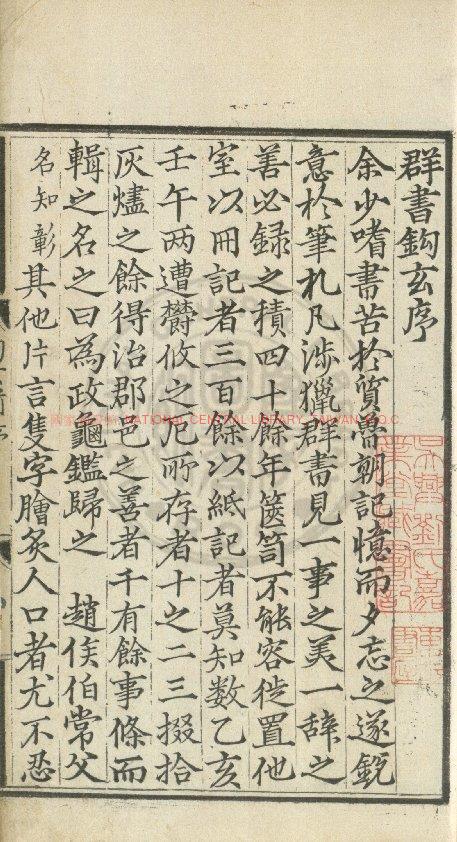 群書鈎玄序
余少嗜書苦於質常朝記憶而夕忘之遂銳
意於筆札凡涉獵群書見一事之美一辞之
善必録之積四十餘年篋笥不能容徙置他
室以冊記者三百餘以紙記者莫知数乙亥
壬午两遭欝攸之厄所存者十之二三掇拾
灰燼之餘得治郡邑之善者千有餘事條而
輯之名之曰為政龜鑑歸之 趙侯伯常父
名知彰其他片言隻字膾炙人口者尤不忍
NATIONAL CENTRAL LIBRARY, TAIWAN